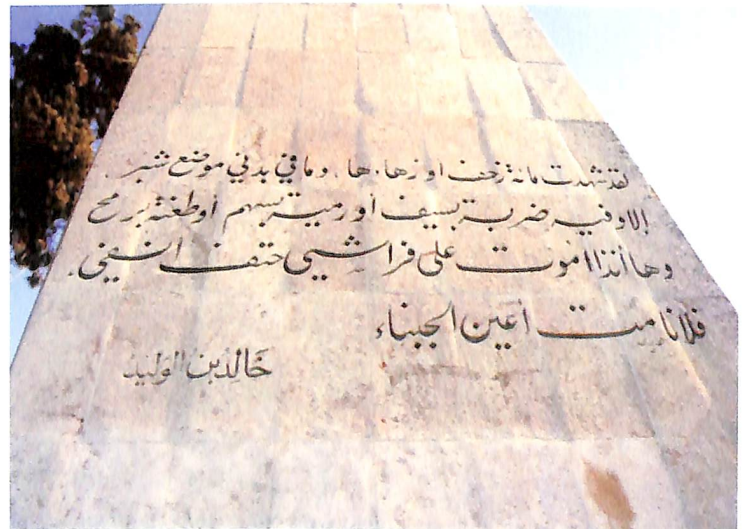 لقد شهدت مائة زحف او زهاءها، وما في بدني موضع شبر
إلا وفيه ضربة بسيف أو رمية بسهم أو طعنة برمح
وها أنذا أموت على فراشي حتف انفي.
فلا نامت اعين الجبناء
خالد بن الوليد